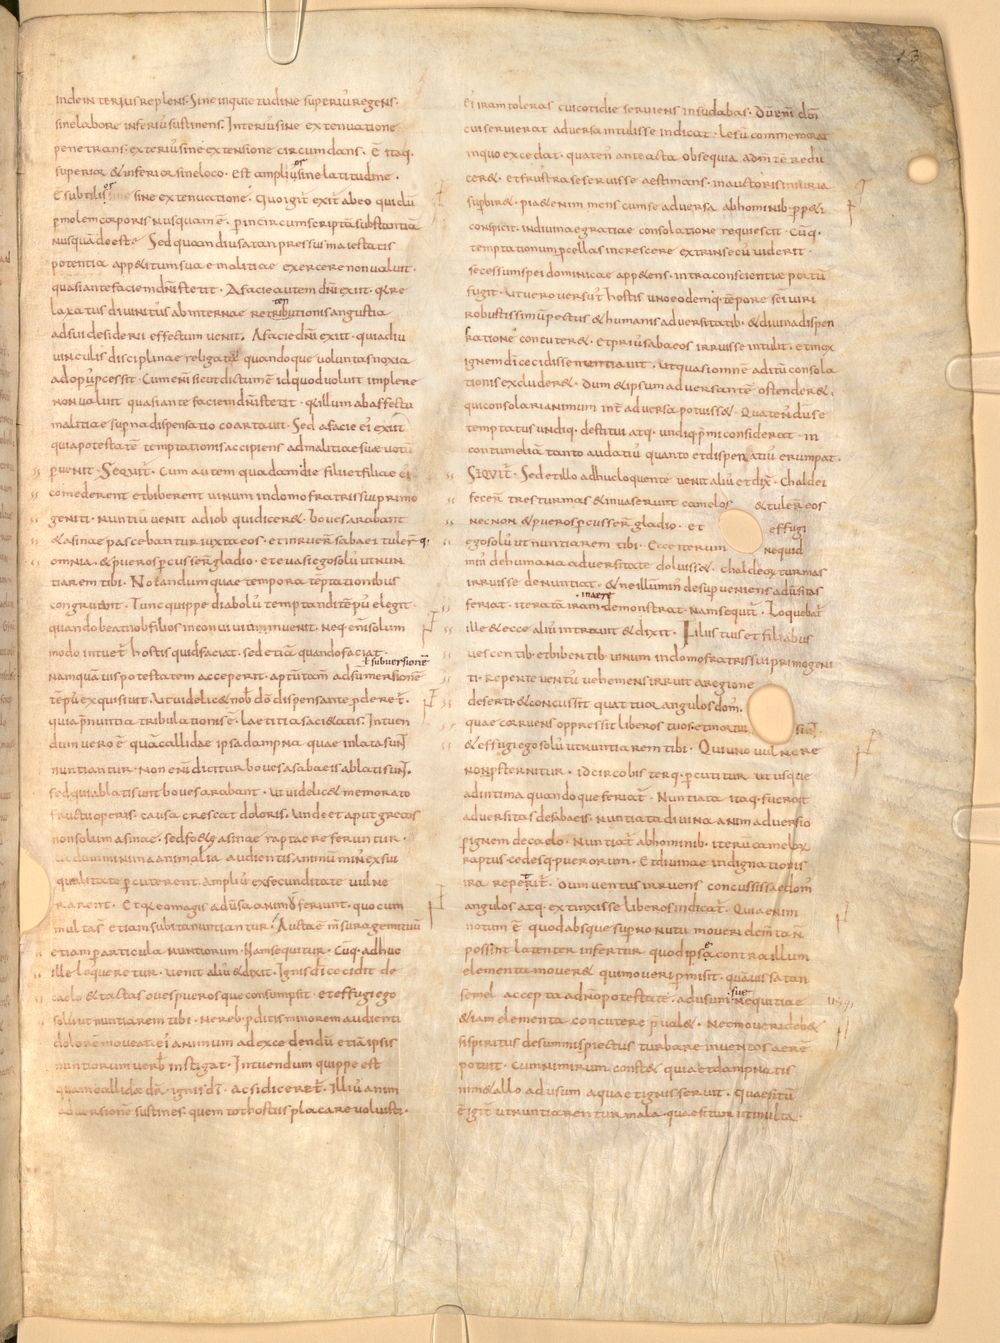 13
inde interius replens. Sine inquietudine superiꝰ regens.
sine labore inferiꝰ sustinens. Interius sine extenuatione
penetrans. exteriꝰ sine extensione circumdans. Ē itaq.
superior & inferior sine loco. Est ampliꝰ sine latitudine.
Ē subtilis sine extenuatione. Quo igit̄ exit abeo qui dū
p̄ molem corporis nusquam ē. p̄ incircumscriptā substantiā
nusquā deest. Sed quamdiu satan pressus maiestatis
potentia app&itum suae malitiae exercere non valuit.
quasi ante faciem dn̄i stetit. A facie autem dn̄i exiit. q̄re
laxatus diuinitꝰ ab internae retributionis angustia
ad sui desiderii effectum uenit. A facie dn̄i exiit. quia diu
uinculis disciplinae religata quandoque voluntas noxia
ad opꝰ pcessit. Cum enī sicut dictum ē id quod voluit implere
non valuit quasi ante faciem dn̄i stetit. q̄ illum ab affectu
malitiae supna dispensatio coartauit. Sed a facie ei exiit
quia potestatē temptationis accipiens ad malitiae suae votū
puenit. Sequit̄. Cum autem quadam die filii et filiae ei
comederent et biberent uinum in domo fratris sui primo
geniti. nuntiꝰ uenit ad iob qui dicer&. boues arabant
& asinae pascebantur iuxta eos. et inruer̄ sabaei tuler̄ q.
omnia. & pueros pcusser̄ gladio. et euasi ego solꝰ ut nun
tiarem tibi. Notandum quae tempora tēptationibus
congruunt. Tunc quippe diabolꝰ temptandi tēpꝰ elegit.
quando beati iob filios in conuiuium inuenit. Neq. enī solum
modo intuet̄ hostis quid faciat. sed etiā quando faciat.
ł subuersionē
Nam quāuis potestatem acceperit. aptū tam̄ ad sumersionē
tēpꝰ exquisiuit. Ut uidelic& nob̄ dō dispensante pderet̄.
quia p̄nuntia tribulationis ē. laetitia saci&atis. Intuen
dum uero ē quā callidae ipsa dampna quae inlata sunt
nuntiantur. Non enī dicitur boues a sabaeis ablati sunt.
sed qui ablati sunt boues arabant. Ut uidelic& memorato
fructu operis. causa crescat doloris. Unde et aput grecos
non solum asinae. sed fo&ae asinae raptae referuntur.
ut dum minima animalia audientis animū minꝰ ex sui
qualitate pcuterent. ampliꝰ ex fecunditate uulne
rarent. Et q̄ eo magis aduersa animū feriunt. quo cum
multa s̄ etiam subita nuntiantur. Aucta ē msura gemituum
etiam particula nuntiorum. Nam sequitur. Cūq. adhuc
ille loqueretur. uenit aliꝰ & dixit. Ignis dī cecidit de
caelo & tactas oues puerosque consumpsit. et effugi ego
solꝰ ut nuntiarem tibi. Ne reb̄ pditis minorem audienti
dolorē moueat. ei animum ad excedendū etiā ipsis
nuntiorum uerb̄ instigat. Intuendum quippe est
quam callidae dr̄. ignis dī. ac si diceret̄. Illiꝰ anim
aduersionē sustines. quem tot hostiis placare voluisti.
ei iram toleras cui cotidie seruiens insudabas. Dū enī dm̄
cui seruierat aduersa intulisse indicat. lesū commemorat
in quo excedat. quatenꝰ anteacta obsequia ad mtē redu
cer&. et frustra se seruisse aestimans. in auctoris iniuria
supbir&. pia &enim mens cum se aduersa ab hominib. p̄p&i
conspicit. in diuinae gratiae consolatione requiescit. Cūq.
temptationum pcellas increscere extrinsecꝰ uiderit.
secessum spei dominicae app&ens. intra conscientiae portū
fugit. Ut uero uersutꝰ hostis uno eodemq. tēpore sc̄i uiri
robustissimū pectus & humanis aduersitatib. & diuina dispen
ratione contuter&. et priꝰ sabaeos irruisse intulit. et mox
ignem dī cecidisse nuntiauit. Ut quasi omnē aditū consola
tionis excluder&. dum & ipsum aduersantē ostender&.
qui consolari animum int̄ aduersa potuiss&. Quatenꝰ dū se
temptatus undiq. destitui atq. undiq. p̄mi considerat. in
contumeliā tanto audatiꝰ quanto et dispenatiꝰ erumpat.
SEQUIT̄. Sed et illo adhuc loquente uenit aliꝰ et dix̄. Chaldei
fecer̄ tres turmas & inuaserunt camelos & tuler̄ eos
nec non & pueros pcusser̄ gladio. et effugi
ego solꝰ ut nuntiarem tibi. Ecce iterum nequid
minꝰ de humana aduersitate doluiss&. Chaldeorꝰ turmas
irruisse denuntiat. & ne illum minꝰ desup ueniens aduersitas
feriat. iteratā iram in aere demonstrat. Nam sequit̄. Loquebat̄
ille & ecce aliꝰ intrauit & dixit. Filiis tuis et filiabus
uescentib. et bibentib. uinum in domo fratris sui primogeni
ti. repente uentꝰ uehemens irruit a regione
deserti. & concussit quattuor angulos dom̄.
quae corruens oppressit liberos tuos. et mortui sunt
& effugi ego solꝰ ut nuntiarem tibi. Qui uno uulnere
non p̄sternitur. idcirco bis terq. pcutitur ut usque
ad intima quandoque feriat̄. Nuntiata itaq. fuerat
aduersitas de sabaeis. nuntiata diuina animaduersio
p ignem de caelo. Nuntiat̄ ab hominib. iterū camelorꝰ
raptus. cedesq. puerorum. Et diuinae indignationis
ira reperit̄. dum uentus irruens concussisse dom̄
angulos atq. extinxisse liberos indicat̄. Quia enim
notum ē quod absque supno nutu moueri elem̄ta n̄
possint. latenter infertur quod ipse contra illum
elementa mouer& qui moueri pmisit. quāuis satan
semel accepta a dn̄o potestate. ad usum suae nequitiae
&iam elementa concutere p̄ual&. Nec moueri deb&
si spiritus de summis piectus turbare in uentos aerē
potuit. Cum nimirum const& quia et dampnatis
in m&allo ad usum aqua et ignis seruit. Quaesitū
ē igit̄ ut nuntiarentur mala. quaesitum ut multa.